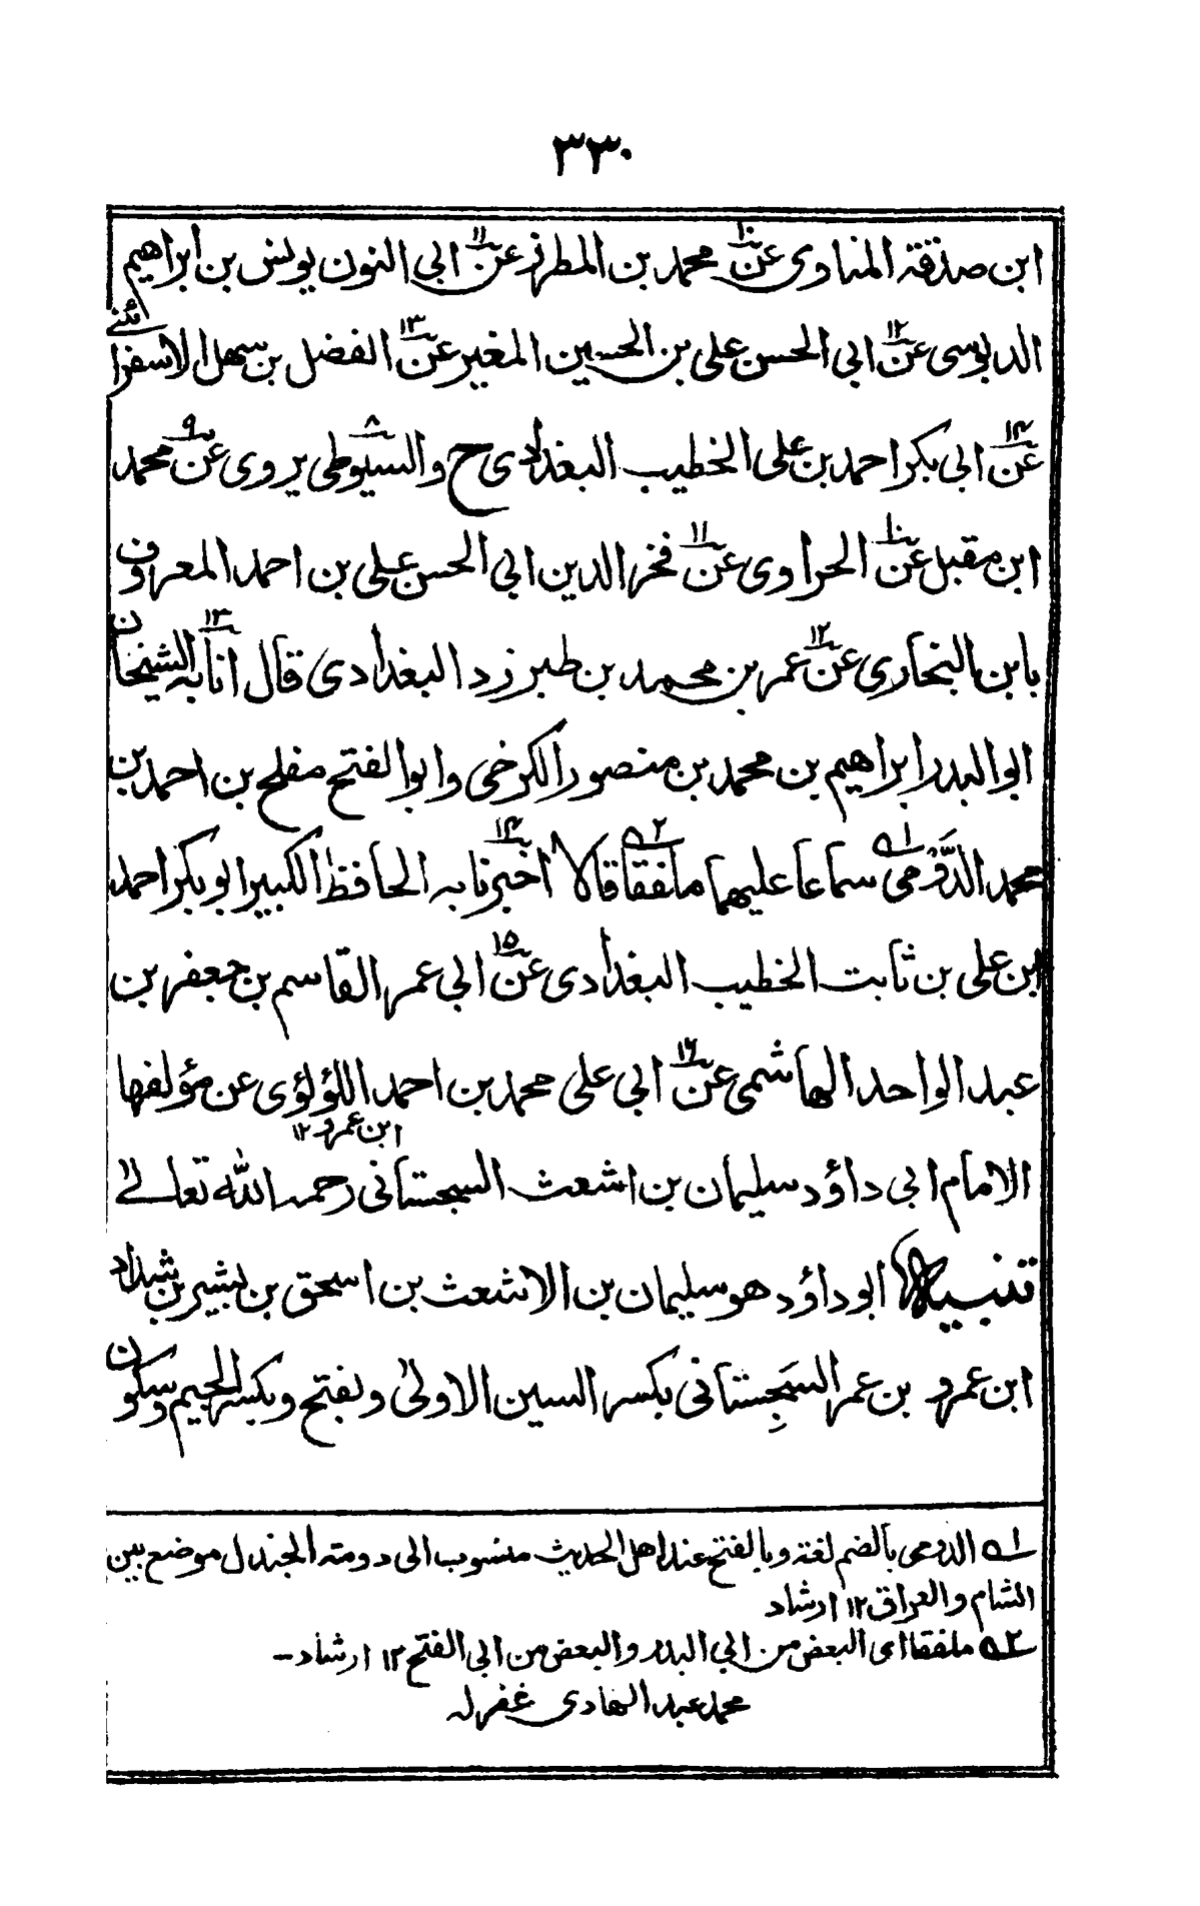 ٣٣٠
ابن صدقة المناوى عن١٠ محمد بن المطرز عن١١ ابى النون يونس بن ابراهيم
الدبوسى عن١٢ ابى الحسن على بن الحسين المغير عن١٣ الفضل بن سهل الاسفرائنے
عن١٤ ابى بكر احمد بن على الخطيب البغدادى ح والسيوطى٨ يروى عن٩ محمد
ابن مقبل عن١٠ الحراوى عن١١ فخر الدين ابى الحسن على بن احمد المعروف
بابن البخارى عن١٢ عمر بن محمد بن طبرزد البغدادى قال انا١٣ به الشيخان
ابو البدر ابراهيم بن محمد بن منصور الكرخى وابو الفتح مفلح بن احمد بن
محمد الدَّوْمى ١ه سماعا عليهما ملفقا ٢ه قالا اخبرنا١٤ به الحافظ الكبير ابو بكر احمد
ابن على بن ثابت الخطيب البغدادى عن١٥ ابى عمر القاسم بن جعفر بن
عبد الواحد الهاشمى عن١٦ ابى على محمد بن احمد اللؤلؤى عن مؤلفها
ابن عمرو ١٢
الامام ابى داؤد سليمان بن اشعث السجستانى رحمه الله تعالىٰ
تنبيه ابو داؤد هو سليمان بن الاشعث بن اسحق بن بشير بن شداد
ابن عمرو بن عمر السَجِستانى بكسر السين الاولىٰ وبفتح وبكسر الجيم وسكون
١ه الدومى بالضم لغة وبالفتح عند اهل الحديث منسوب الى دومة الجندل موضع بين
الشام والعراق ١٢ ارشاد
٢ه ملفقا اى البعض من ابى البدر والبعض من ابى الفتح ١٢ ارشاد -
محمد عبد الهادى غفرله